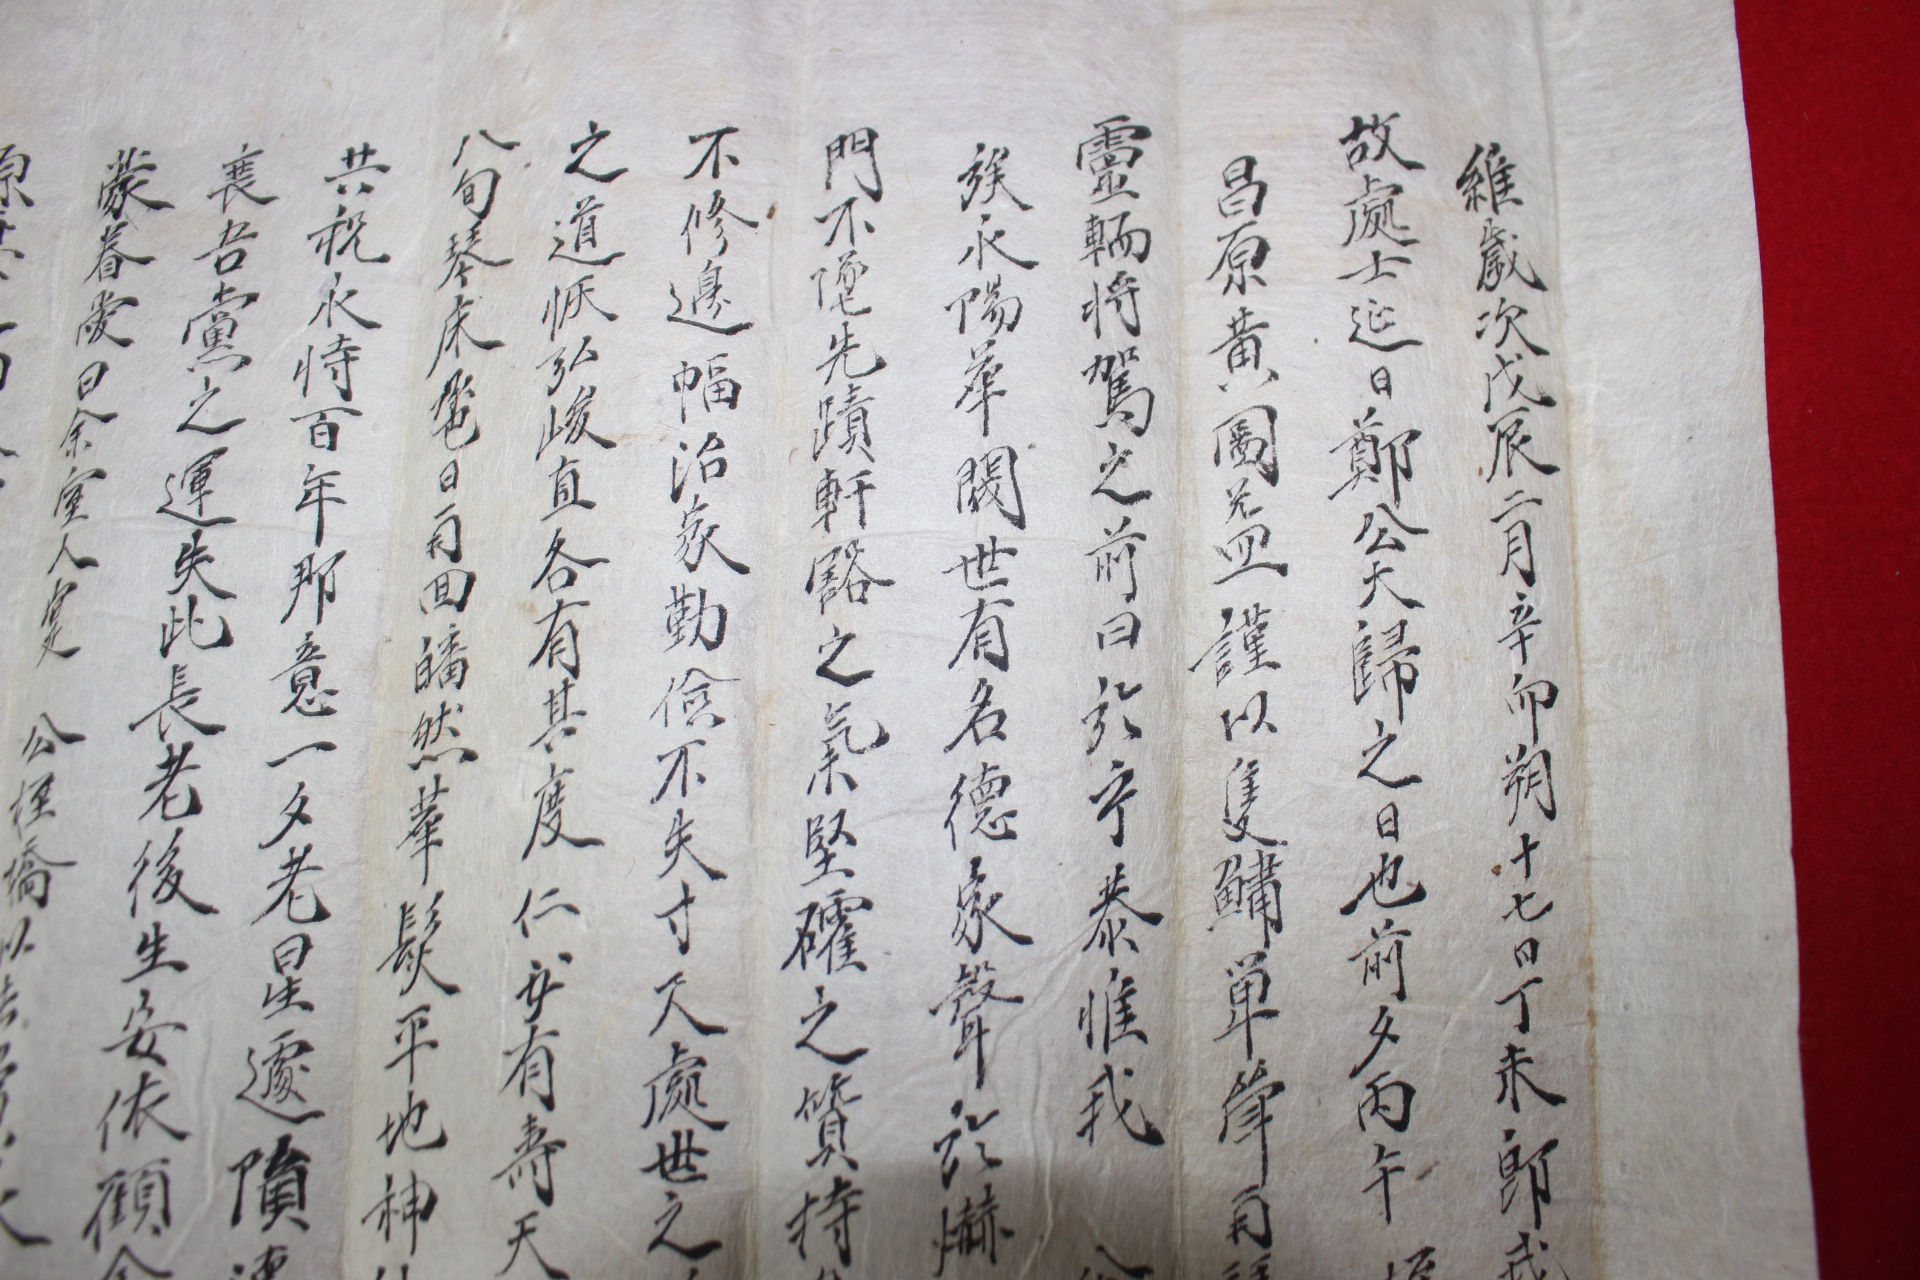 維歲次戊辰二月辛卯朔十七日丁未即我
故處士延日鄭公大歸之日也前夕丙午
昌原黃圖益謹以隻鷄單觴再
靈輀將駕之前曰於乎恭惟我
族永陽華閥世有名德家聲於赫
門不墜先蹟軒豁之氣堅確之質持
不修邊幅治家勤儉不失寸尺處世之
之道恢弘峻直各有其度仁必有壽天
八旬琴床鬯日再回皤然華髮平地神
共祝永恃百年那意一夕老星遽隕
喪吾黨之運失此長老後生安依顧余
蒙眷愛日余室人寔 公